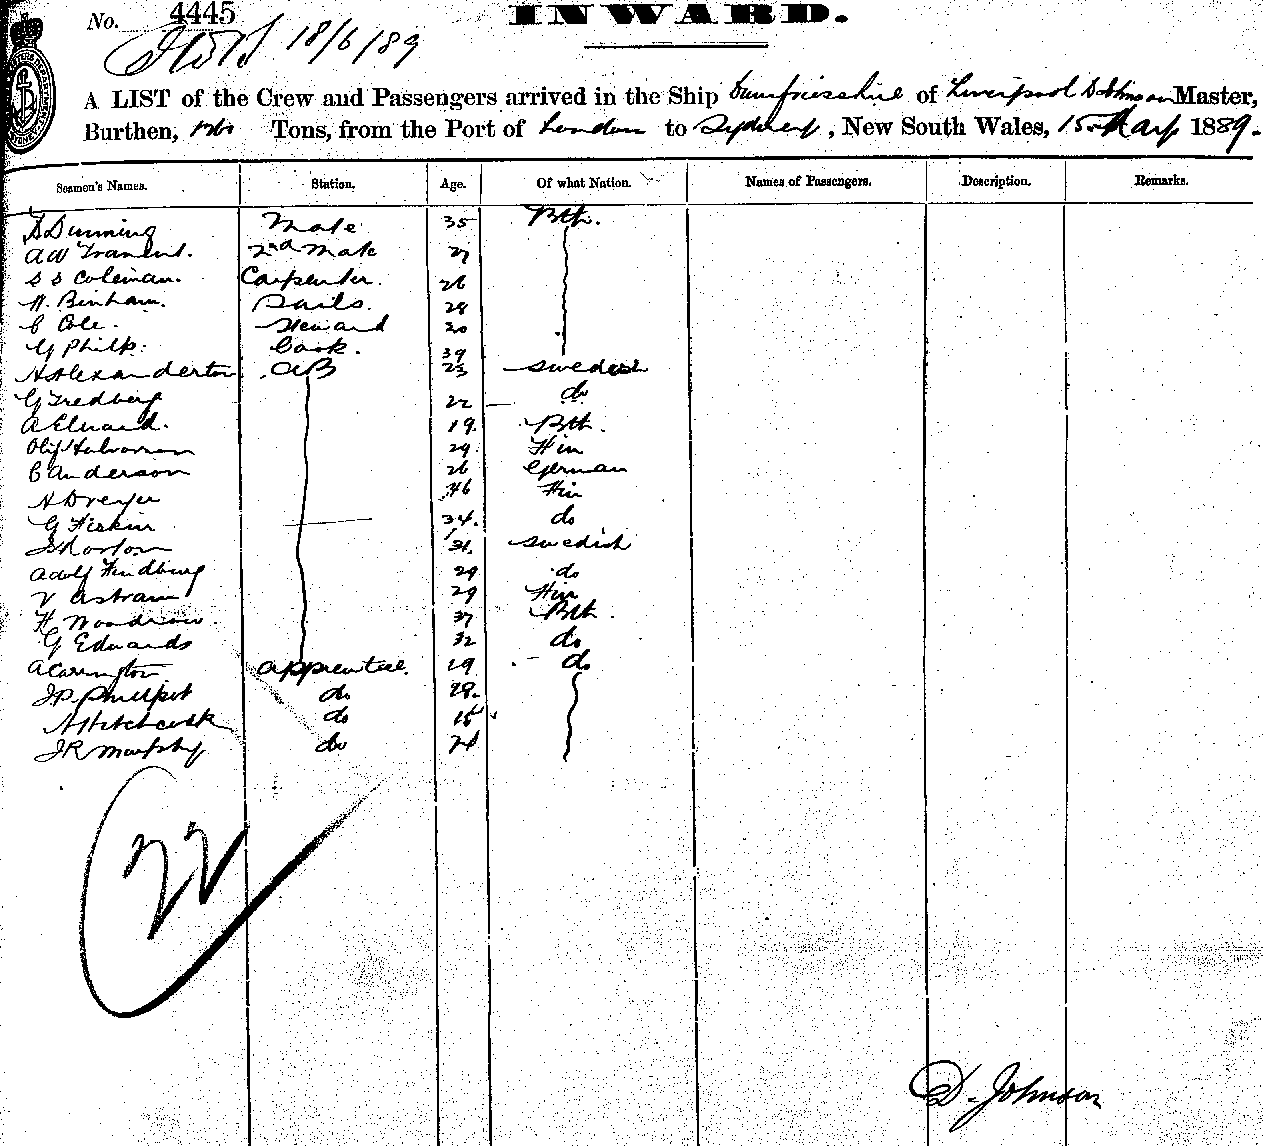 No. 4445 INWARD.
18/6/89
A LIST of the Crew and Passengers arrived in the Ship Dumfriesshire of Liverpool D Johnson Master,
Burthen, Tons, from the Port of London to Sydney, New South Wales, 15 May 1889.
Seamen's Names. Station. Age. Of what Nation. Names of Passengers. Description. Remarks.
Dunning Mate 35 Bth.
A W 2nd Mate 27
S S Coleman. Carpenter. 26
H. Benham. Sails. 28
C Cole. Steward 20
G Philp. Cook. 39
A Alexanderton AB 23 Swedish
G Fredberg 22 do
A Edward. 19. Bth.
Olif Halvorsen 29. Fin
C Anderson 26 German
A Dreyer 46 Fin
G Firskin 34. do
31. Swedish
Adolf Findburg 29 do
V Astram 29 Fin
H Woodrow. 37 Bth.
G Edwards 32 do
A Carrington Apprentice. 19 do
J P. Phillpot do 18.
A Hitchcock do 15
J R Murphy do
22
D. Johnson